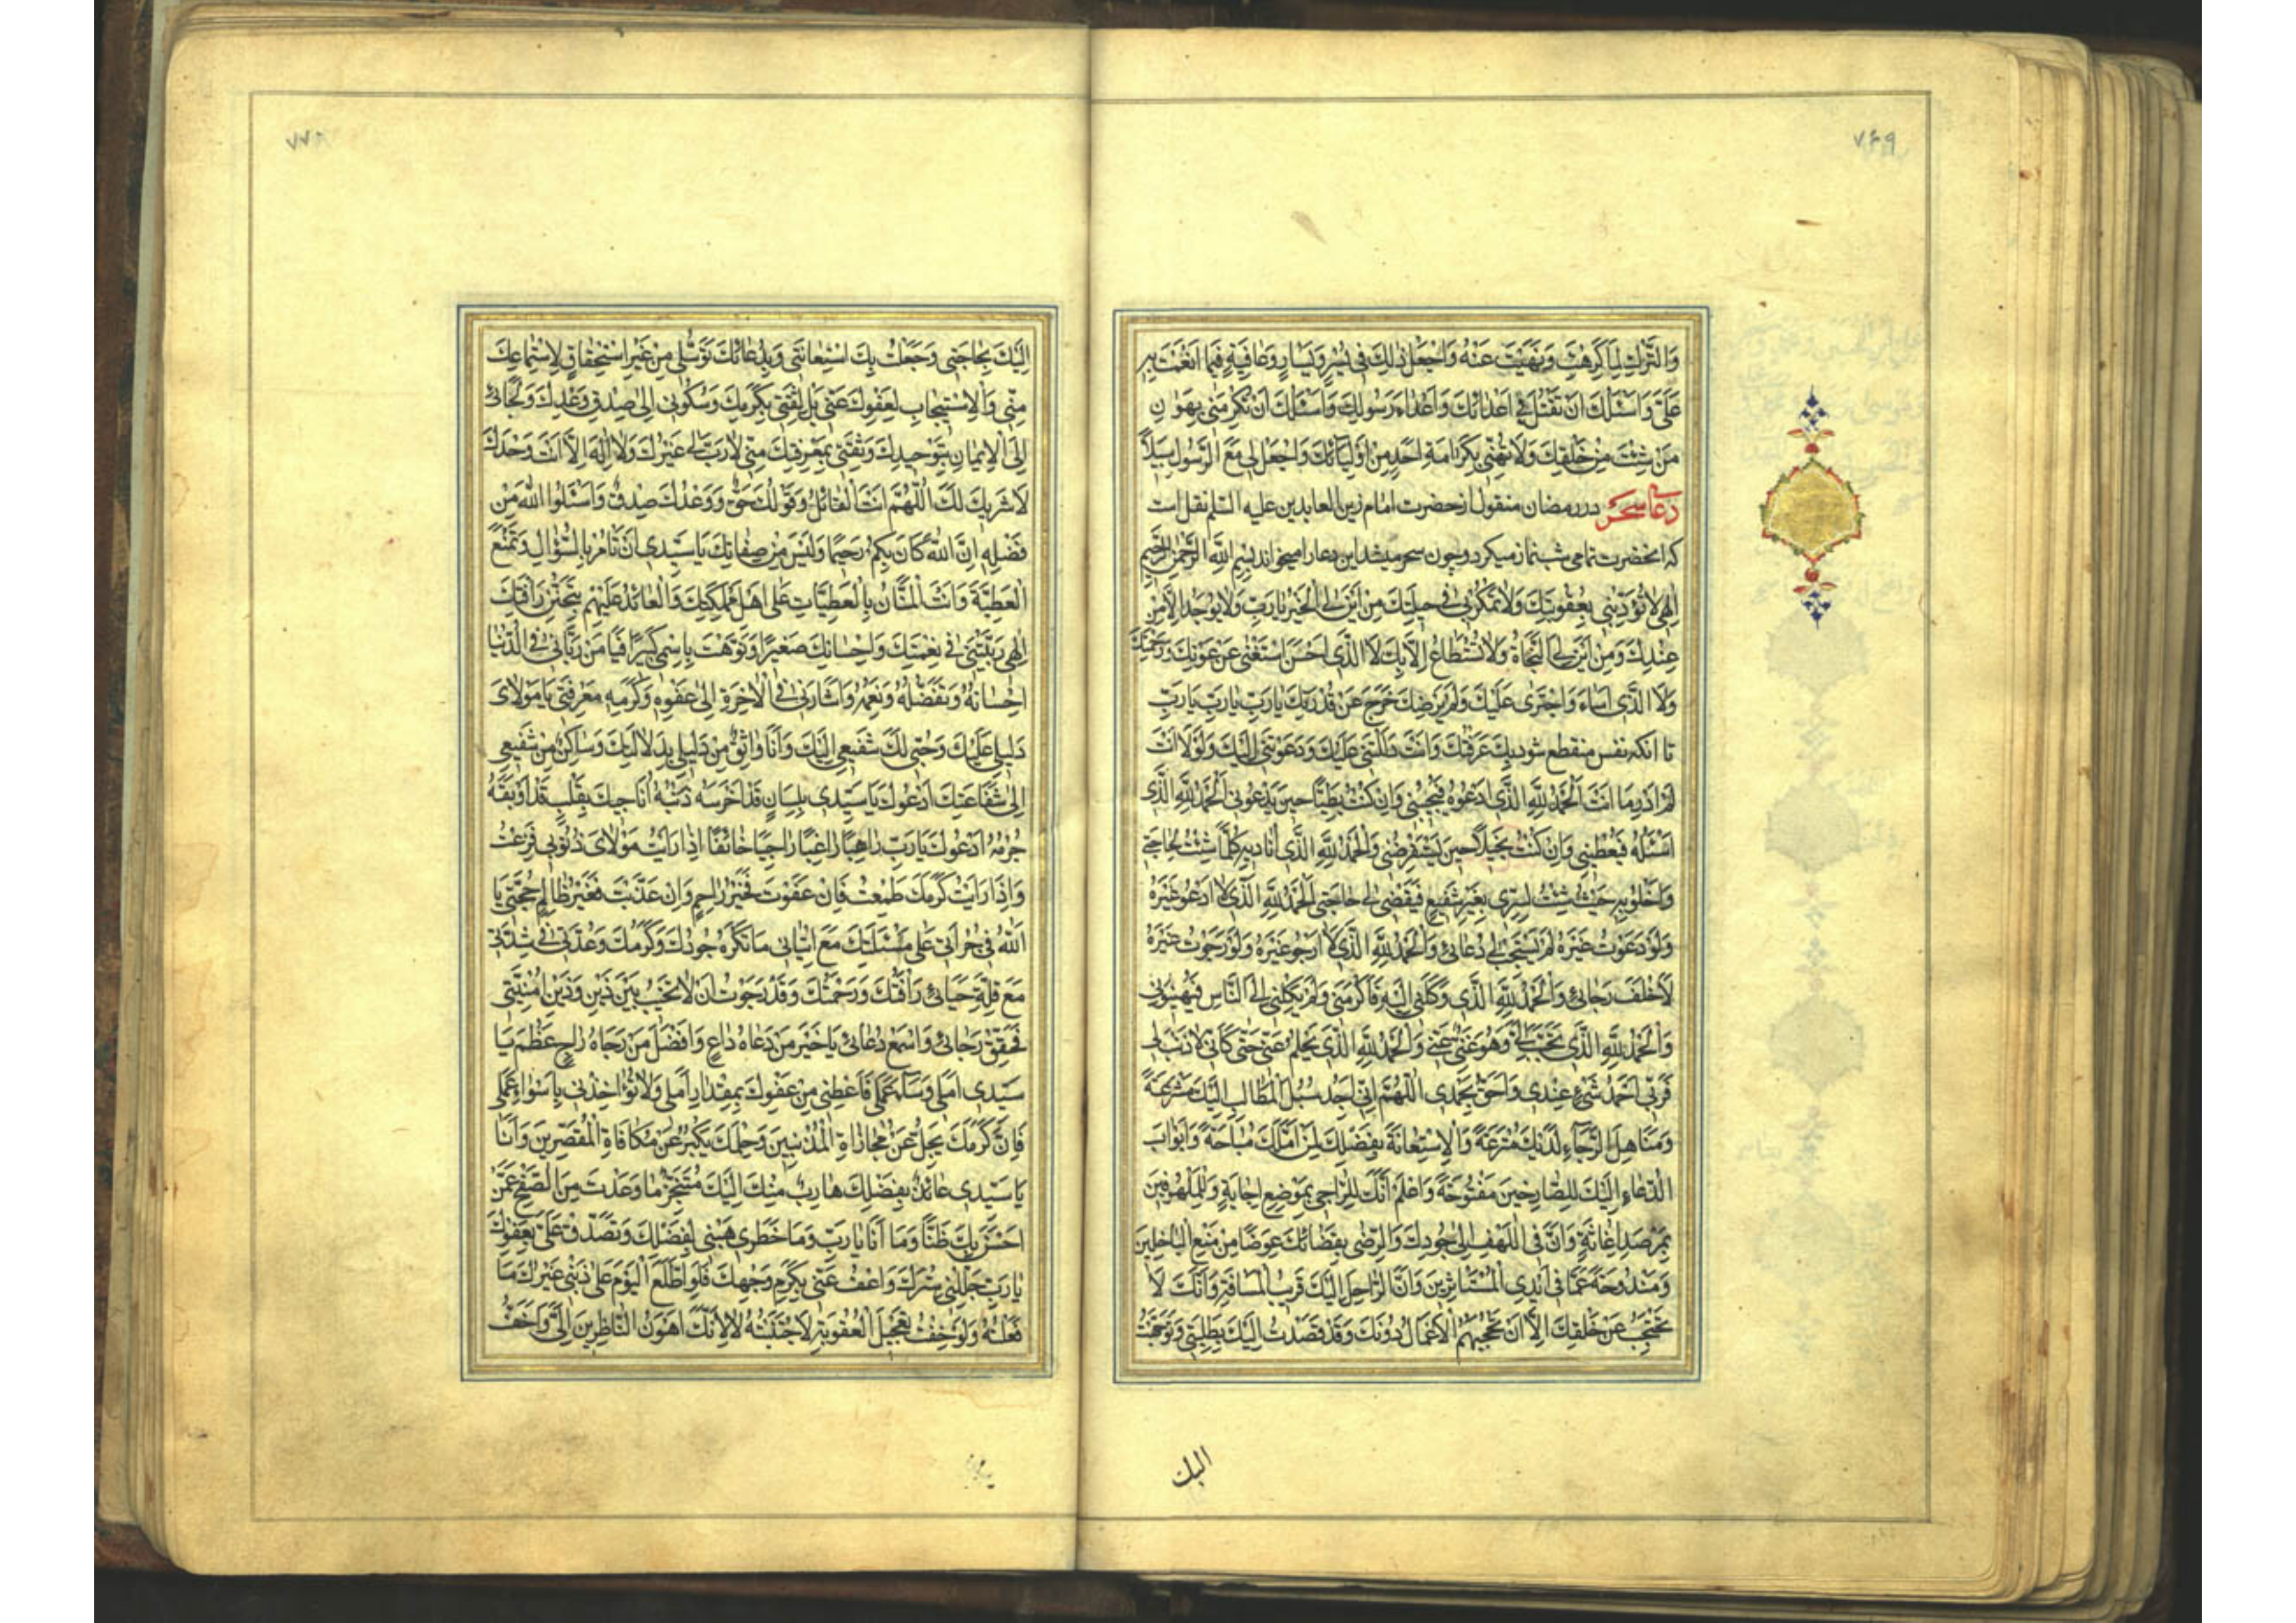 ۷۶۹
وَالتَّرْكِ لِمَا كَرِهْتَ وَنَهَيْتَ عَنْهُ وَاجْعَلْ ذٰلِكَ فى يُسْرٍ وَيَسَارٍ وَعَافِيَةٍ فيما اَنْعَمْتَ بِهِ
عَلَىَّ وَاَسْئَلُكَ اَنْ تَقْتُلَ بى اَعْدَائَكَ وَاَعْدَاءَ رَسُولِكَ وَاَسْئَلُكَ اَنْ تُكْرِمَنى بِهَوَانِ
مَنْ شِئْتَ مِنْ خَلْقِكَ وَلَا تُهِنّى بِكَرَامَةِ اَحَدٍ مِنْ اَوْلِيَائِكَ وَاجْعَلْ لى مَعَ الرَّسُولِ سَبيلاً
دعاء سحر در رمضان منقول از حضرت امام زین العابدین علیه السلم نقل است
که انحضرت تمامی شب نماز میکرد و چون سحر میشد این دعا را میخواند بِسْمِ اللهِ الرَّحْمٰنِ الرَّحيمِ
اِلٰهى لَا تُؤَدِّبْنى بِعُقُوبَتِكَ وَلَا تَمْكُرْ بى فى حيلَتِكَ مِنْ اَيْنَ لِىَ الْخَيْرُ يَا رَبِّ وَلَا يُوجَدُ اِلَّا مِنْ
عِنْدِكَ وَمِنْ اَيْنَ لِىَ النَّجَاةُ وَلَا تُسْتَطَاعُ اِلَّا بِكَ لَا الَّذى اَحْسَنَ اسْتَغْنٰى عَنْ عَوْنِكَ وَرَحْمَتِكَ
وَلَا الَّذى اَسَاءَ وَاجْتَرٰى عَلَيْكَ وَلَمْ يُرْضِكَ خَرَجَ عَنْ قُدْرَتِكَ يَا رَبِّ يَا رَبِّ يَا رَبِّ
تا انکه نفس منقطع شود بِكَ عَرَفْتُكَ وَاَنْتَ دَلَلْتَنى عَلَيْكَ وَدَعَوْتَنى اِلَيْكَ وَلَوْلَا اَنْتَ
لَمْ اَدْرِ مَا اَنْتَ اَلْحَمْدُ لِلّٰهِ الَّذى اَدْعُوهُ فَيُجيبُنى وَاِنْ كُنْتُ بَطيئًا حينَ يَدْعُونى اَلْحَمْدُ لِلّٰهِ الَّذى
اَسْئَلُهُ فَيُعْطينى وَاِنْ كُنْتُ بَخيلاً حينَ يَسْتَقْرِضُنى وَالْحَمْدُ لِلّٰهِ الَّذى اُناديهِ كُلَّمَا شِئْتُ لِحَاجَتى
وَاَخْلُو بِهِ حَيْثُ شِئْتُ لِسِرّى بِغَيْرِ شَفيعٍ فَيَقْضى لى حَاجَتى اَلْحَمْدُ لِلّٰهِ الَّذى لَا اَدْعُو غَيْرَهُ
وَلَوْ دَعَوْتُ غَيْرَهُ لَمْ يَسْتَجِبْ لى دُعَائى وَالْحَمْدُ لِلّٰهِ الَّذى لَا اَرْجُو غَيْرَهُ وَلَوْ رَجَوْتُ غَيْرَهُ
لَاَخْلَفَ رَجَائى وَالْحَمْدُ لِلّٰهِ الَّذى وَكَلَنى اِلَيْهِ فَاَكْرَمَنى وَلَمْ يَكِلْنى اِلَى النَّاسِ فَيُهينُونى
وَالْحَمْدُ لِلّٰهِ الَّذى تَحَبَّبَ اِلَىَّ وَهُوَ غَنِىٌّ عَنّى وَالْحَمْدُ لِلّٰهِ الَّذى يَحْلُمُ عَنّى حَتّٰى كَاَنّى لَا ذَنْبَ لى
فَرَبّى اَحْمَدُ شَىْءٍ عِنْدى وَاَحَقُّ بِحَمْدى اَللّٰهُمَّ اِنّى اَجِدُ سُبُلَ الْمَطَالِبِ اِلَيْكَ مُشْرَعَةً
وَمَنَاهِلَ الرَّجَاءِ لَدَيْكَ مُتْرَعَةً وَالْاِسْتِعَانَةَ بِفَضْلِكَ لِمَنْ اَمَّلَكَ مُبَاحَةً وَاَبْوَابَ
الدُّعَاءِ اِلَيْكَ لِلصَّارِخينَ مَفْتُوحَةً وَاَعْلَمُ اَنَّكَ لِلرَّاجى بِمَوْضِعِ اِجَابَةٍ وَلِلْمَلْهُوفينَ
بِمَرْصَدِ اِغَاثَةٍ وَاَنَّ فى اللَّهْفِ اِلٰى جُودِكَ وَالرِّضٰى بِقَضَائِكَ عِوَضًا مِنْ مَنْعِ الْبَاخِلينَ
وَمَنْدُوحَةً عَمَّا فى اَيْدِى الْمُسْتَاْثِرينَ وَاَنَّ الرَّاحِلَ اِلَيْكَ قَريبُ الْمَسَافَةِ وَاَنَّكَ لَا
تَحْتَجِبُ عَنْ خَلْقِكَ اِلَّا اَنْ تَحْجُبَهُمُ الْاَعْمَالُ دُونَكَ وَقَدْ قَصَدْتُ اِلَيْكَ بِطَلِبَتى وَتَوَجَّهْتُ
الیك
اِلَيْكَ بِحَاجَتى وَجَعَلْتُ بِكَ اسْتِغَاثَتى وَبِدُعَائِكَ تَوَسُّلى مِنْ غَيْرِ اسْتِحْقَاقٍ لِاسْتِمَاعِكَ
مِنّى وَلَا اسْتيجَابٍ لِعَفْوِكَ عَنّى بَلْ لِثِقَتى بِكَرَمِكَ وَسُكُونى اِلٰى صِدْقِ وَعْدِكَ وَلَجَائى
اِلَى الْايمَانِ بِتَوْحيدِكَ وَثِقَتى بِمَعْرِفَتِكَ مِنّى لَا رَبَّ لى غَيْرُكَ وَلَا اِلٰهَ اِلَّا اَنْتَ وَحْدَكَ
لَا شَريكَ لَكَ اَللّٰهُمَّ اَنْتَ الْقَائِلُ وَقَوْلُكَ حَقٌّ وَوَعْدُكَ صِدْقٌ وَاسْئَلُوا اللهَ مِنْ
فَضْلِهِ اِنَّ اللهَ كَانَ بِكُمْ رَحيمًا وَلَيْسَ مِنْ صِفَاتِكَ يَا سَيِّدى اَنْ تَاْمُرَ بِالسُّؤَالِ وَتَمْنَعَ
الْعَطِيَّةَ وَاَنْتَ الْمَنَّانُ بِالْعَطِيَّاتِ عَلٰى اَهْلِ مَمْلَكَتِكَ وَالْعَائِدُ عَلَيْهِمْ بِتَحَنُّنِ رَاْفَتِكَ
اِلٰهى رَبَّيْتَنى فى نِعْمَتِكَ وَاِحْسَانِكَ صَغيرًا وَنَوَّهْتَ بِاسْمى كَبيرًا فَيَا مَنْ رَبَّانى فى الدُّنْيَا
اِحْسَانُهُ وَتَفَضُّلُهُ وَنِعَمُهُ وَاَشَارَ لى فى الْاٰخِرَةِ اِلٰى عَفْوِهِ وَكَرَمِهِ مَعْرِفَتى يَا مَوْلَاىَ
دَليلى عَلَيْكَ وَحُبّى لَكَ شَفيعى اِلَيْكَ وَاَنَا وَاثِقٌ مِنْ دَليلى بِدَلَالَتِكَ وَسَاكِنٌ مِنْ شَفيعى
اِلٰى شَفَاعَتِكَ اَدْعُوكَ يَا سَيِّدى بِلِسَانٍ قَدْ اَخْرَسَهُ ذَنْبُهُ اُنَاجيكَ بِقَلْبٍ قَدْ اَوْبَقَهُ
جُرْمُهُ اَدْعُوكَ يَا رَبِّ رَاهِبًا رَاغِبًا رَاجِيًا خَائِفًا اِذَا رَاَيْتُ مَوْلَاىَ ذُنُوبى فَزِعْتُ
وَاِذَا رَاَيْتُ كَرَمَكَ طَمِعْتُ فَاِنْ عَفَوْتَ فَخَيْرُ رَاحِمٍ وَاِنْ عَذَّبْتَ فَغَيْرُ ظَالِمٍ حُجَّتى يَا
اَللهُ فى جُرْاَتى عَلٰى مَسْئَلَتِكَ مَعَ اِتْيَانى مَا تَكْرَهُ جُودُكَ وَكَرَمُكَ وَعُدَّتى فى شِدَّتى
مَعَ قِلَّةِ حَيَائى رَاْفَتُكَ وَرَحْمَتُكَ وَقَدْ رَجَوْتُ اَنْ لَا تَخيبَ بَيْنَ ذَيْنِ وَذَيْنِ مُنْيَتى
فَحَقِّقْ رَجَائى وَاسْمَعْ دُعَائى يَا خَيْرَ مَنْ دَعَاهُ دَاعٍ وَاَفْضَلَ مَنْ رَجَاهُ رَاجٍ عَظُمَ يَا
سَيِّدى اَمَلى وَسَاءَ عَمَلى فَاَعْطِنى مِنْ عَفْوِكَ بِمِقْدَارِ اَمَلى وَلَا تُؤَاخِذْنى بِاَسْوَاءِ عَمَلى
فَاِنَّ كَرَمَكَ يَجِلُّ عَنْ مُجَازَاةِ الْمُذْنِبينَ وَحِلْمَكَ يَكْبُرُ عَنْ مُكَافَاةِ الْمُقَصِّرينَ وَاَنَا
يَا سَيِّدى عَائِذٌ بِفَضْلِكَ هَارِبٌ مِنْكَ اِلَيْكَ مُتَنَجِّزٌ مَا وَعَدْتَ مِنَ الصَّفْحِ عَمَّنْ
اَحْسَنَ بِكَ ظَنًّا وَمَا اَنَا يَا رَبِّ وَمَا خَطَرى هَبْنى لِفَضْلِكَ وَتَصَدَّقْ عَلَىَّ بِعَفْوِكَ
يَا رَبِّ جَلِّلْنى بِسِتْرِكَ وَاعْفُ عَنّى بِكَرَمِ وَجْهِكَ فَلَوِ اطَّلَعَ الْيَوْمَ عَلٰى ذَنْبى غَيْرُكَ مَا
فَعَلْتُهُ وَلَوْ خِفْتُ تَعْجيلَ الْعُقُوبَةِ لَاجْتَنَبْتُهُ لَا لِاَنَّكَ اَهْوَنُ النَّاظِرينَ اِلَىَّ وَاَخَفُّ